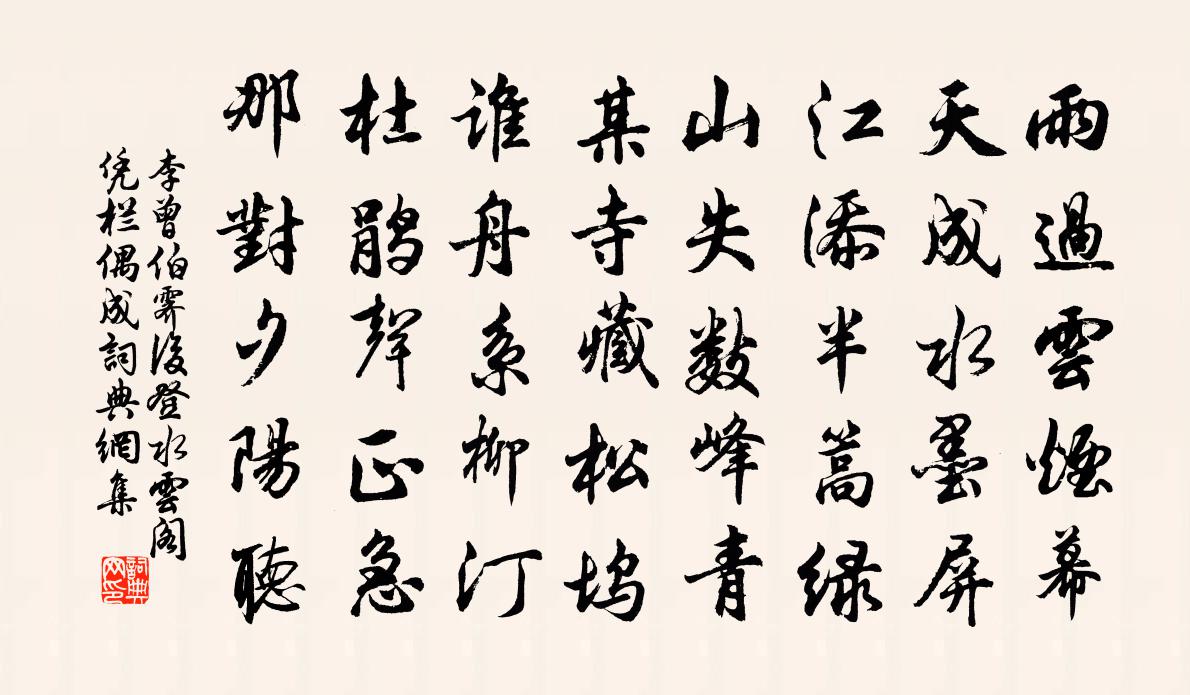 雨過雲煙幕
天成水墨屏
江添半篙绿
山失數峰青
某寺藏松坞
谁舟系柳汀
杜鹃聲正急
那對夕陽聽
李曾伯霁後登水雲阁
凭栏偶成詞典網集
詞典网印